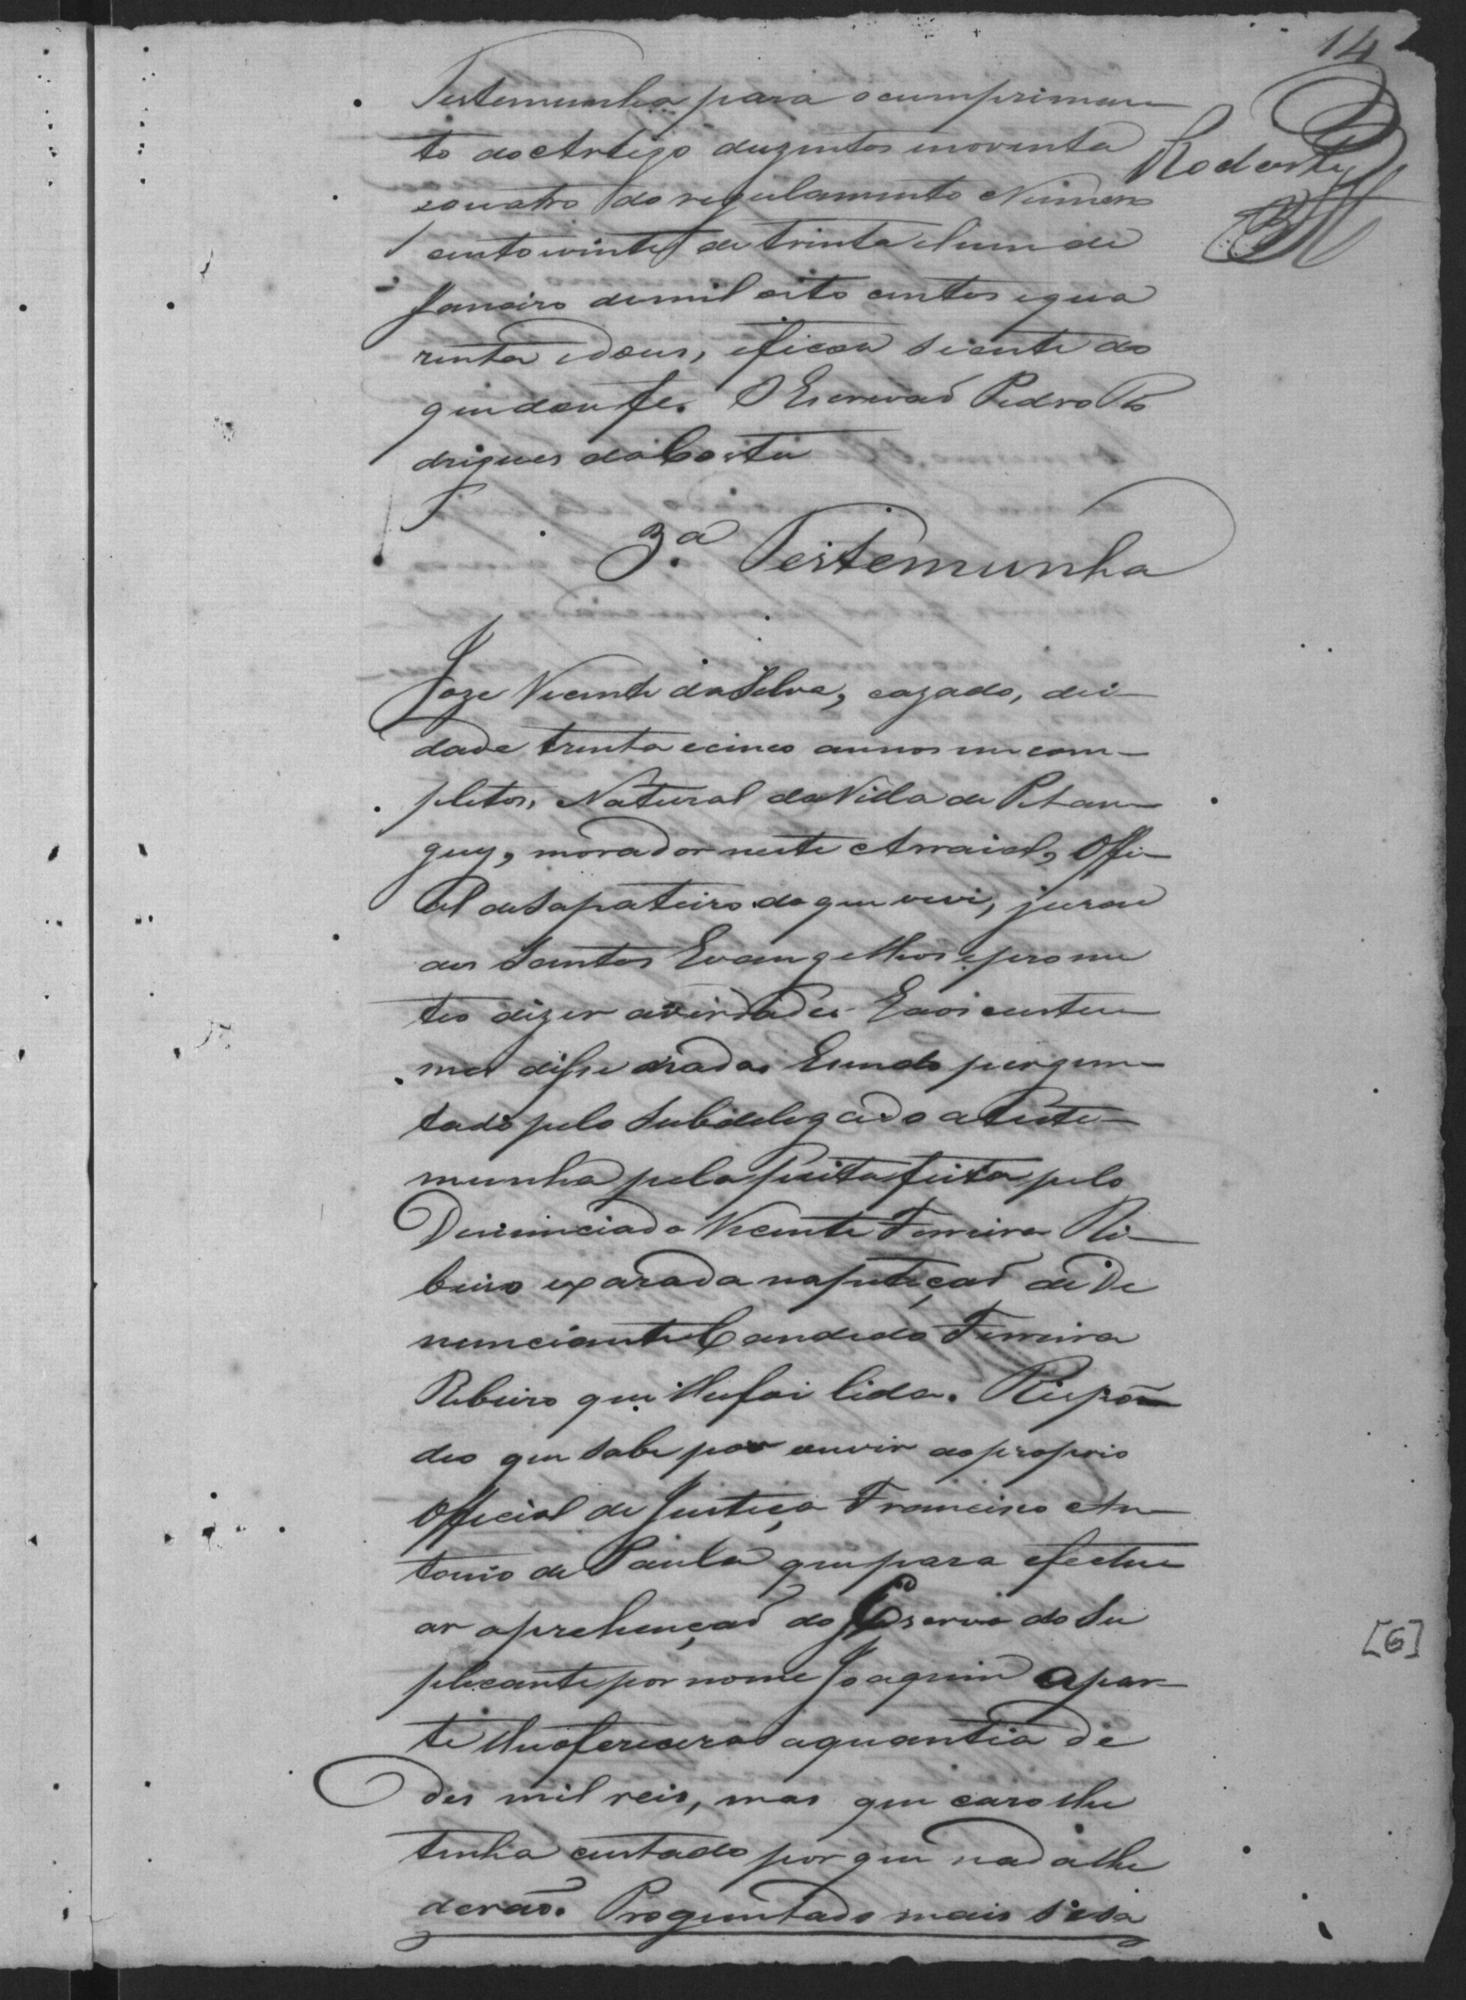 14
Testemunha para o cumprimen
to do Artigo duzentos e noventa
e quatro do regulamento Numero
cento e vinte de trinta e hum de
Janeiro de mil oito centos e qua
renta e dous, e ficou siente do
que dou fe. O Escrivaõ Pedro Ro
drigues da Costa
Rodarte
3.a Testemunha
Joze Vicente da Silva, cazado, de i-
dade trenta e cinco annos in com-
pletos, Natural da Villa de Pitan-
guy, morador neste Arraial, Offi-
al de Sapateiro do que vive, jurou
aos Santos Evangelhos e prome
teo dizer a verdade. E aos custu-
mes disse nada. E sendo pergun-
tado pelo Subdelegado a teste-
munha pela peita feita pelo
Denunciado Vicente Ferreira Ri-
beiro exarada na petiçaõ de De
nunciante Candido Ferreira
Ribeiro que lhe foi lida. Respon
deo que sabe por ouvir ao proprio
Official de Justiça Francisco An-
tonio de Paula que para efectu
ar aprehençaõ do Escravo do Su
plicante por nome Joaquim a par-
te lhe oferecera a quantia de
des mil reis, mas que caro lhe
tinha custado por que nada lhe
deraõ. Proguntado mais si sa
[6]